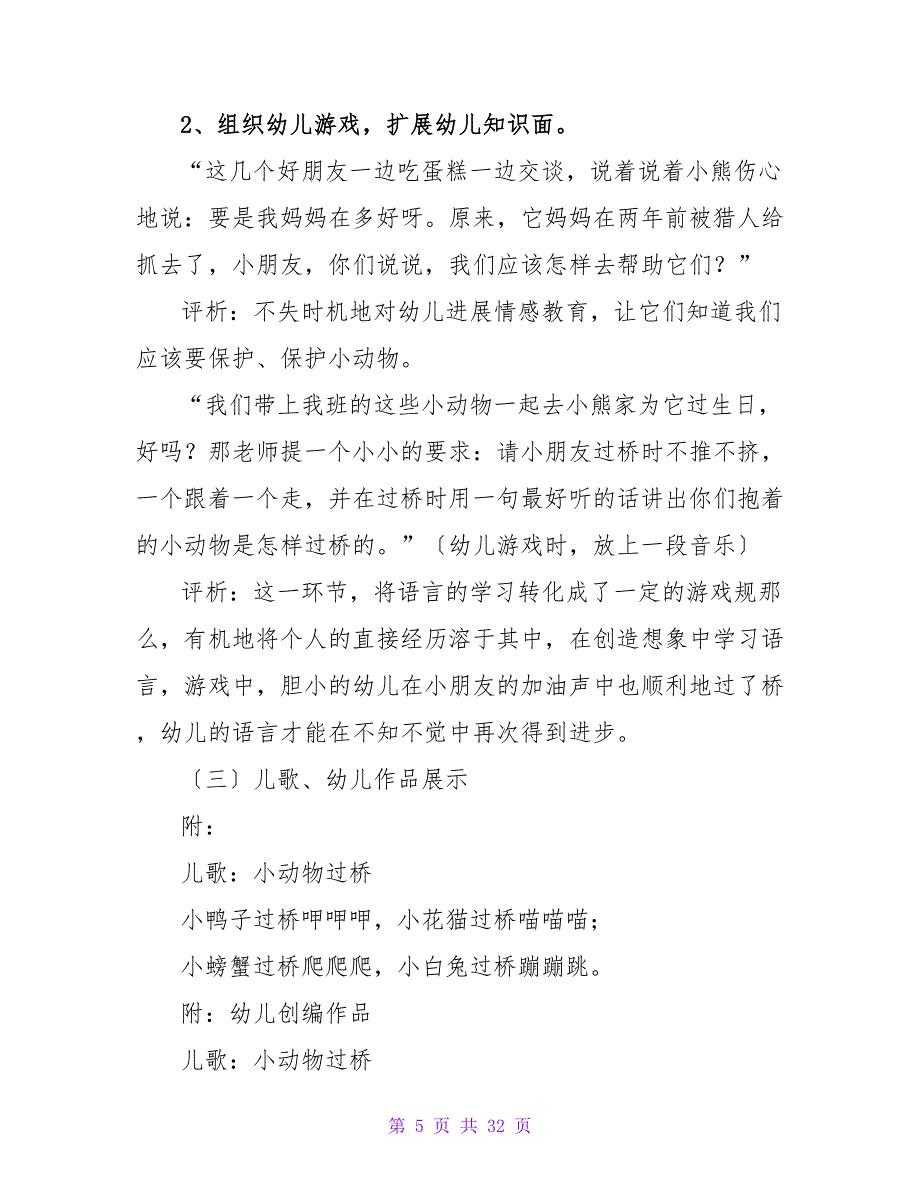 2、组织幼儿游戏，扩展幼儿知识面。
“这几个好朋友一边吃蛋糕一边交谈，说着说着小熊伤心
地说：要是我妈妈在多好呀。原来，它妈妈在两年前被猎人给
抓去了，小朋友，你们说说，我们应该怎样去帮助它们？”
评析：不失时机地对幼儿进展情感教育，让它们知道我们
应该要保护、保护小动物。
“我们带上我班的这些小动物一起去小熊家为它过生日，
好吗？那老师提一个小小的要求：请小朋友过桥时不推不挤，
一个跟着一个走，并在过桥时用一句最好听的话讲出你们抱着
的小动物是怎样过桥的。”〔幼儿游戏时，放上一段音乐〕
评析：这一环节，将语言的学习转化成了一定的游戏规那
么，有机地将个人的直接经历溶于其中，在创造想象中学习语
言，游戏中，胆小的幼儿在小朋友的加油声中也顺利地过了桥
，幼儿的语言才能在不知不觉中再次得到进步。
〔三〕儿歌、幼儿作品展示
附：
儿歌：小动物过桥
小鸭子过桥呷呷呷，小花猫过桥喵喵喵；
小螃蟹过桥爬爬爬，小白兔过桥蹦蹦跳。
附：幼儿创编作品
儿歌：小动物过桥
第 5 页 共 32 页